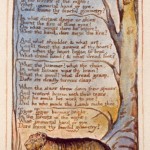 In the forests of the night;
What immortal hand or eye,
Could frame thy fearful symmetry?
In what distant deeps or skies,
Burnt the fire of thine eyes?
On what wings dare he aspire?
What the hand, dare sieze the fire?
And what shoulder, & what art,
Could twist the sinews of thy heart?
And when thy heart began to beat,
What dread hand? & what dread feet?
What the hammer? what the chain,
In what furnace was thy brain?
What the anvil? what dread grasp,
Dare its deadly terrors clasp?
When the stars threw down their spears
And water'd heaven with their tears:
Did he smile his work to see?
Did he who made the Lamb make thee?
Tyger Tyger burning bright,
In the forests of the night:
What immortal hand or eye,
Dare frame thy fearful symmetry?